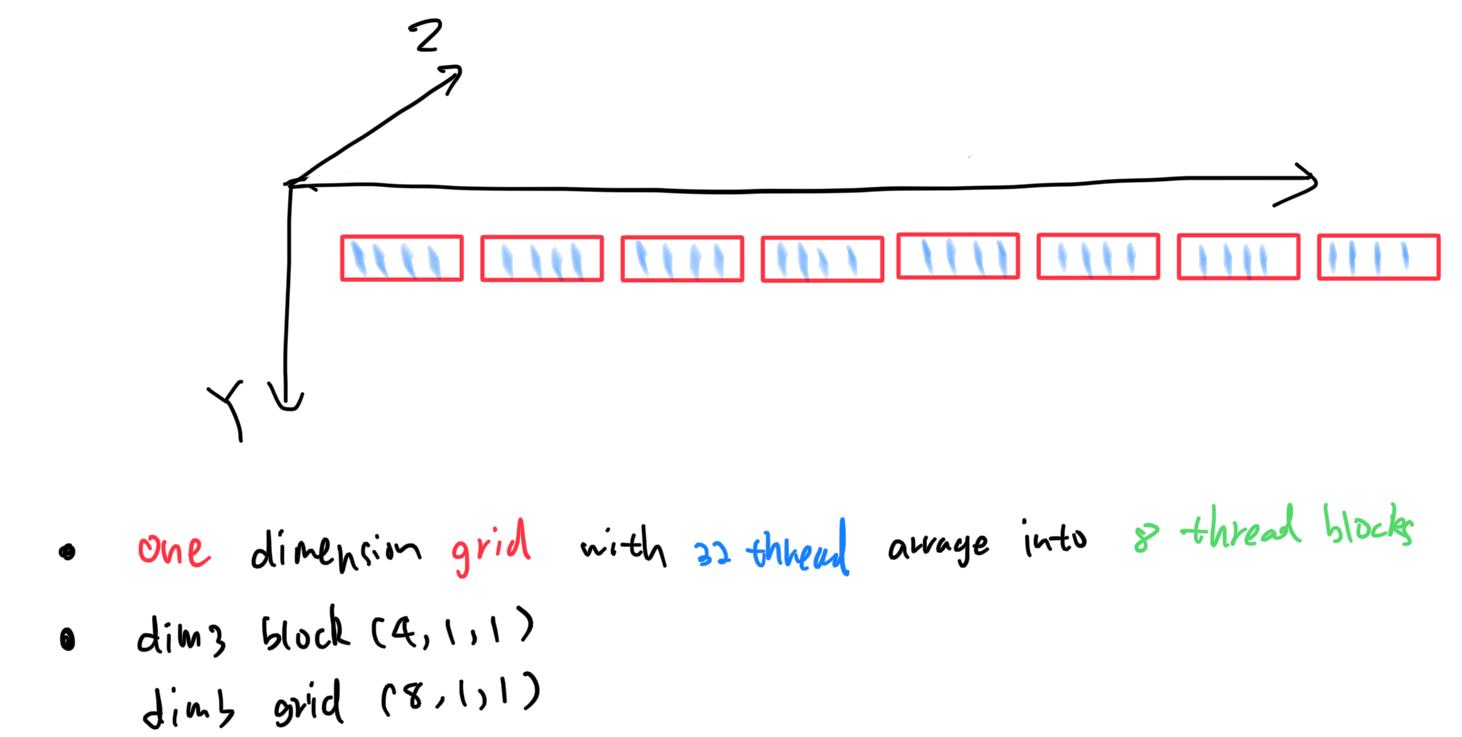 Z
Y
• one dimension grid with 32 thread arrage into 8 thread blocks
• dim3 block (4,1,1)
dim3 grid (8,1,1)